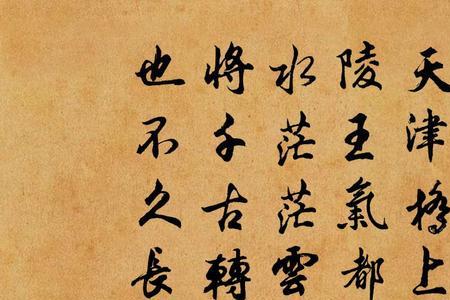 天津橋上
陵王氣都
水茫茫雲
將千古轉
也不久長